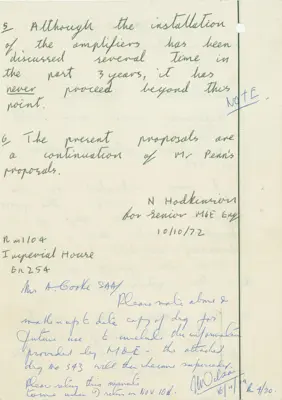 5. Although the installation
of the amplifiers has been
discussed several time in
the past 3 years, it has
never proceed beyond this
point.
NOTE.
6. The present proposals are
a continuation of Mr Penn's
proposals.
N Hodkinson
for Senior M&E Eng
10/10/72
Rm 1104
Imperial House
Ex 254
Mr A Cooke
Please note above &
make up to date copy of drg for
future use to include the information
provided by M&E - the attached
drg no 543 will then become superseded
Please